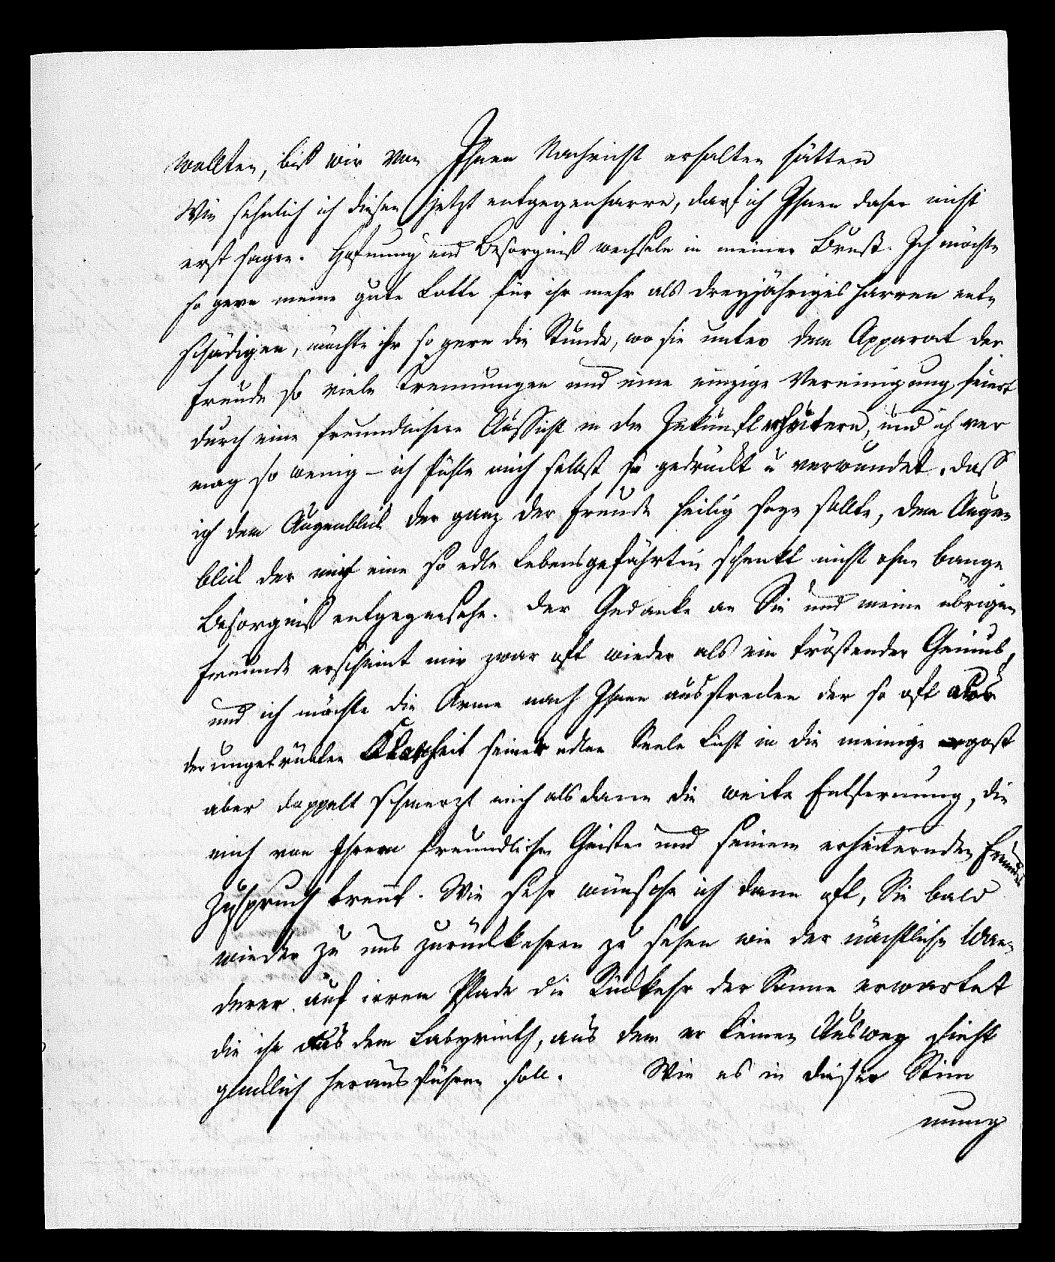 wollten, biß wir von Ihnen Nachricht erhalten hätten
Wie sehnlich ich diesen jetzt entgegenharre, darf ich Ihnen daher nicht
erst sagen. Hofnung und Besorgniß wechseln in meiner Brust. Ich möchte
so gern meine gute Lotte für ihr mehr als dreyjähriges Harren ent-
schädigen, möchte ihr so gern die Stunde, wo sie unter dem Apparat der
Freude so viele Trennungen und eine einzige Vereinigung feiert
durch eine freundlichere Aussicht in die Zukunft erheitern, und ich ver
mag so wenig – ich fühle mich selbst so gedrückt u verwundet, daß
ich dem Augenblick der ganz der Freude heilig seyn sollte, dem Augen-
blick der mir eine so edle Lebensgefährtin schenkt nicht ohne bange
Besorgniß entgegensehe. Der Gedanke an Sie und meine übrigen
Freunde erscheint mir zwar oft wieder als ein tröstender Genius,
und ich möchte die Arme nach Ihnen ausstrecken der so oft aus
der ungetrübten Klarheit seiner edlen Seele Licht in die meinige ergost
aber doppelt schmerzt mich alsdann die weite Entfernung, die
mich von Ihrem freundlichen Geiste und seinem erheiternden
Zuspruch trennt. Wie sehr wünsche ich dann oft, Sie bald
wieder zu uns zurückkehren zu sehen wie der nächtliche Wan-
derer auf irrem Pfade die Rückkehr der Sonne erwartet
die ihn aus dem Labyrinth, aus dem er keinen Ausweg sieht
glücklich herausführen soll. Wie es in dieser Stim
mung